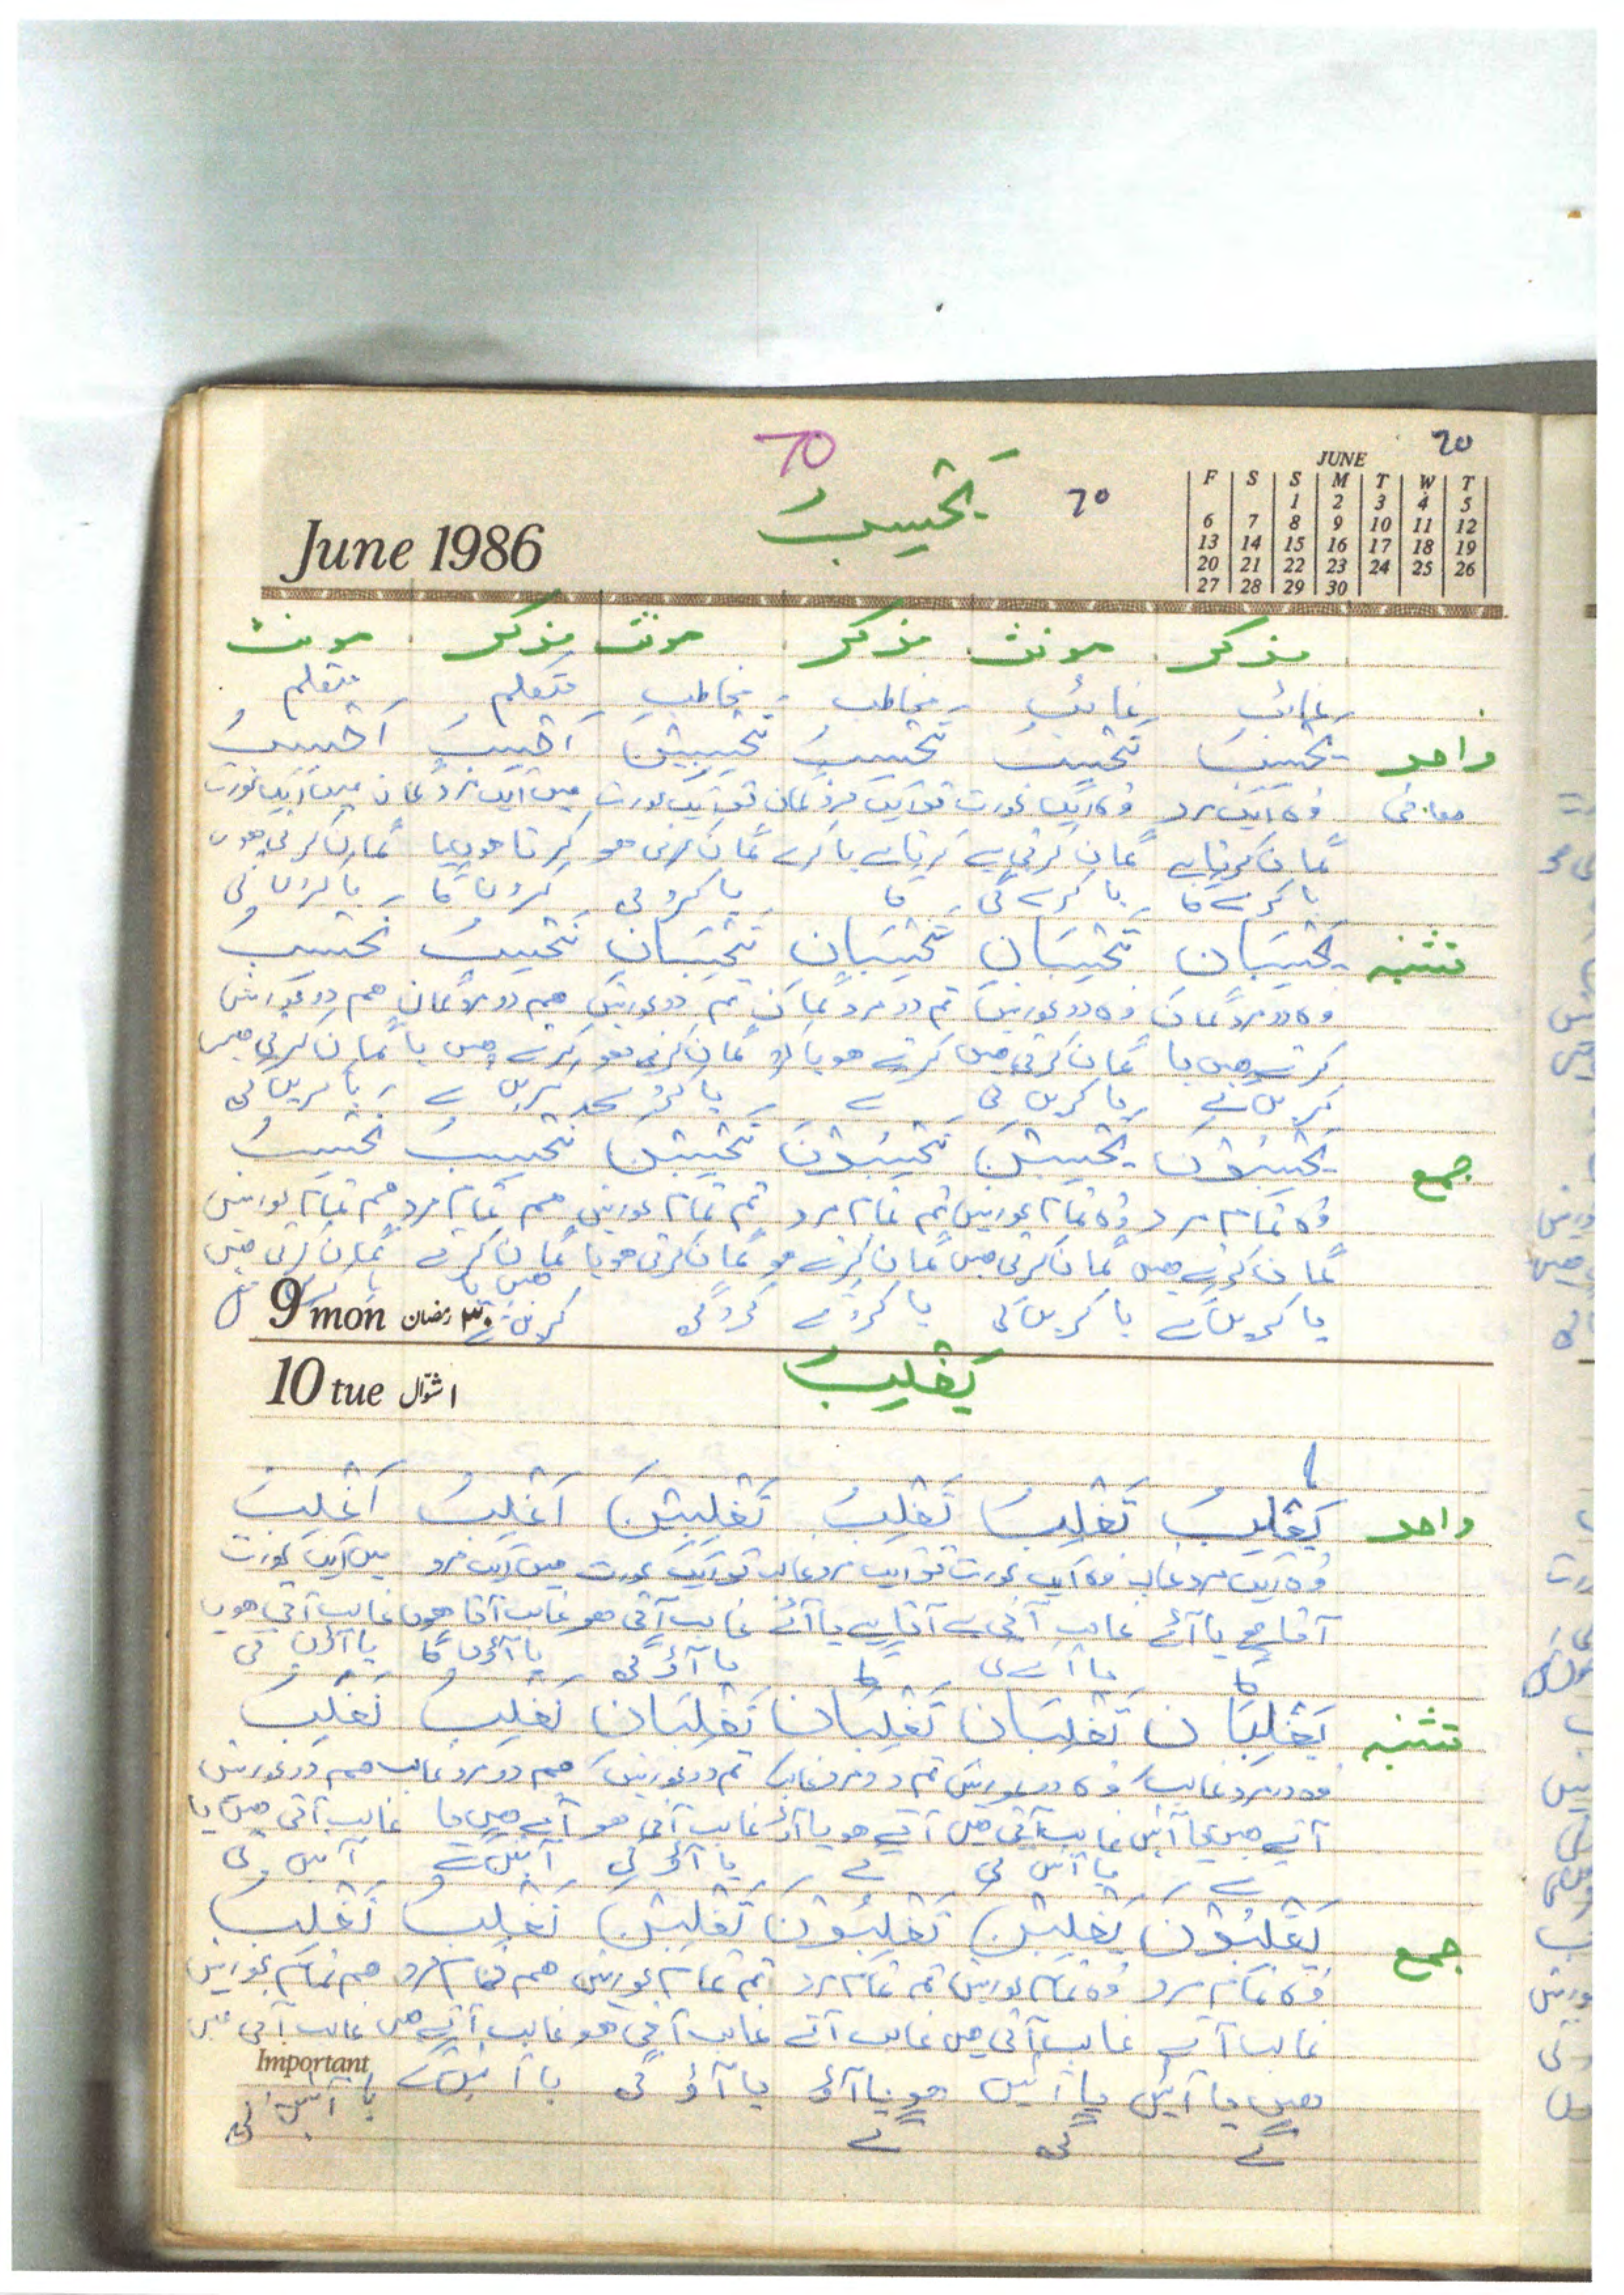 70
70
20
يَحْسِبُ
June 1986
JUNE
F S S M T W T
1 2 3 4 5
6 7 8 9 10 11 12
13 14 15 16 17 18 19
20 21 22 23 24 25 26
27 28 29 30
مذکر مونث مذکر مونث مذکر مونث
غائب غائب مخاطب مخاطب متکلم متکلم
واحد يَحْسِبُ تَحْسِبُ تَحْسِبُ تَحْسِبِيْنَ اَحْسِبُ اَحْسِبُ
معانی وہ ایک مرد وہ ایک عورت تو ایک مرد گمان تو ایک عورت میں ایک مرد گمان میں ایک عورت
گمان کرتا ہے گمان کرتی ہے کرتا ہے یا کرے گمان کرتی ہو کرتا ہوں یا گمان کرتی ہوں
یا کرے گا یا کرے گی گا یا کرو گی کروں گا یا کروں گی
تثنیہ يَحْسِبَانِ تَحْسِبَانِ تَحْسِبَانِ تَحْسِبَانِ نَحْسِبُ نَحْسِبُ
وہ دو مرد گمان وہ دو عورتیں تم دو مرد گمان تم دو عورتیں ہم دو مرد گمان ہم دو عورتیں
کرتے ہیں یا گمان کرتی ہیں کرتے ہو یا کرو گمان کرتی ہو کرتے ہیں یا گمان کرتی ہیں
کریں گے یا کریں گی گے یا کرو گی کریں گے یا کریں گی
جمع يَحْسِبُوْنَ يَحْسِبْنَ تَحْسِبُوْنَ تَحْسِبْنَ نَحْسِبُ نَحْسِبُ
وہ تمام مرد وہ تمام عورتیں تم تمام مرد تم تمام عورتیں ہم تمام مرد ہم تمام عورتیں
گمان کرتے ہیں گمان کرتی ہیں گمان کرتے ہو گمان کرتی ہو یا گمان کرتے گمان کرتی ہیں
یا کریں گے یا کریں گی یا کرو گے کرو گی ہیں یا کریں گے
9 mon ۳۰ رمضان
10 tue ۱ شوّال
يَغْلِبُ
واحد يَغْلِبُ تَغْلِبُ تَغْلِبُ تَغْلِبِيْنَ اَغْلِبُ اَغْلِبُ
وہ ایک مرد غالب وہ ایک عورت تو ایک مرد غالب تو ایک عورت میں ایک مرد میں ایک عورت
آتا ہے یا آئے غالب آتی ہے آتا ہے یا آئے غالب آتی ہو غالب آتا ہوں غالب آتی ہوں
گا یا آئے گی گا یا آؤ گی یا آؤں گا یا آؤں گی
تثنیہ يَغْلِبَانِ تَغْلِبَانِ تَغْلِبَانِ تَغْلِبَانِ نَغْلِبُ نَغْلِبُ
وہ دو مرد غالب وہ دو عورتیں تم دو مرد غالب تم دو عورتیں ہم دو مرد غالب ہم دو عورتیں
آتے ہیں یا آئیں غالب آتی ہیں آتے ہو یا آؤ غالب آتی ہو آتے ہیں یا غالب آتی ہیں یا
گے یا آئیں گی گے یا آؤ گی آئیں گے آئیں گی
جمع يَغْلِبُوْنَ يَغْلِبْنَ تَغْلِبُوْنَ تَغْلِبْنَ نَغْلِبُ نَغْلِبُ
وہ تمام مرد وہ تمام عورتیں تم تمام مرد تم تمام عورتیں ہم تمام مرد ہم تمام عورتیں
غالب آتے غالب آتی ہیں غالب آتے غالب آتی ہو غالب آتے ہیں غالب آتی ہیں
Important
ہیں یا آئیں یا آئیں ہو یا آؤ یا آؤ گی یا آئیں گے یا آئیں گی
گے گی گے